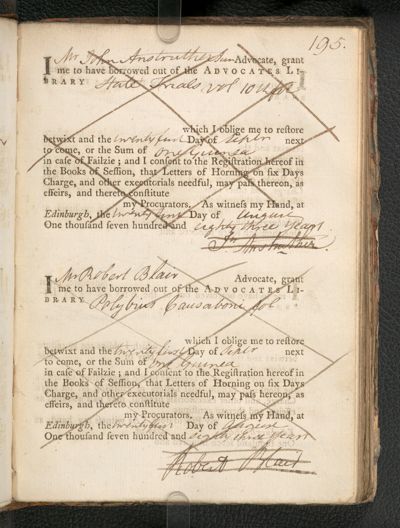 195.
I Mr John Anstruther Advocate, grant
me to have borrowed out of the ADVOCATES LI-
BRARY State Trials vol 10
which I oblige me to reſtore
betwixt and the twenty first Day of next
to come, or the Sum of One Guinea
in caſe of Failzie ; and I conſent to the Regiſtration hereof in
the Books of Seſſion, that Letters of Horning on ſix Days
Charge, and other executorials needful, may paſs thereon, as
effeirs, and thereto conſtitute
my Procurators. As witneſs my Hand, at
Edinburgh, the twenty first Day of August
One thouſand ſeven hundred and eighty three years
Jn Anstruther.
I Mr Robert Blair Advocate, grant
me to have borrowed out of the ADVOCATES LI-
BRARY Polybius Causaboni fol
which I oblige me to reſtore
betwixt and the twenty first Day of next
to come, or the Sum of one Guinea
in caſe of Failzie ; and I conſent to the Regiſtration hereof in
the Books of Seſſion, that Letters of Horning on ſix Days
Charge, and other executorials needful, may paſs hereon, as
effeirs, and thereto conſtitute
my Procurators. As witneſs my Hand, at
Edinburgh, the twenty first Day of August
One thouſand ſeven hundred and eighty three years
Robert Blair